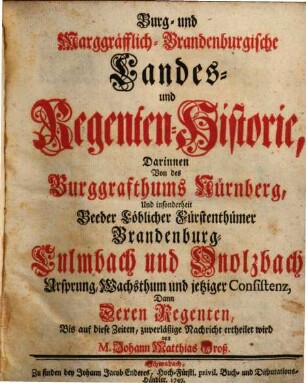 Burg- und
Marggräfflich-Brandenburgische
Landes-
und
Regenten-Historie,
Darinnen
Von des
Burggrafthums Nürnberg,
Und insonderheit
Beeder Löblicher Fürstenthümer
Brandenburg-
Culmbach und Onolzbach
Ursprung, Wachsthum und jetziger Consistenz,
Dann
Deren Regenten,
Bis auf diese Zeiten, zuverläßige Nachricht ertheilet wird
von
M. Johann Matthias Groß.
Schwabach,
Zu finden bey Johann Jacob Enderes, Hoch-Fürstl. privil. Buch- und Disputations-
Händler.